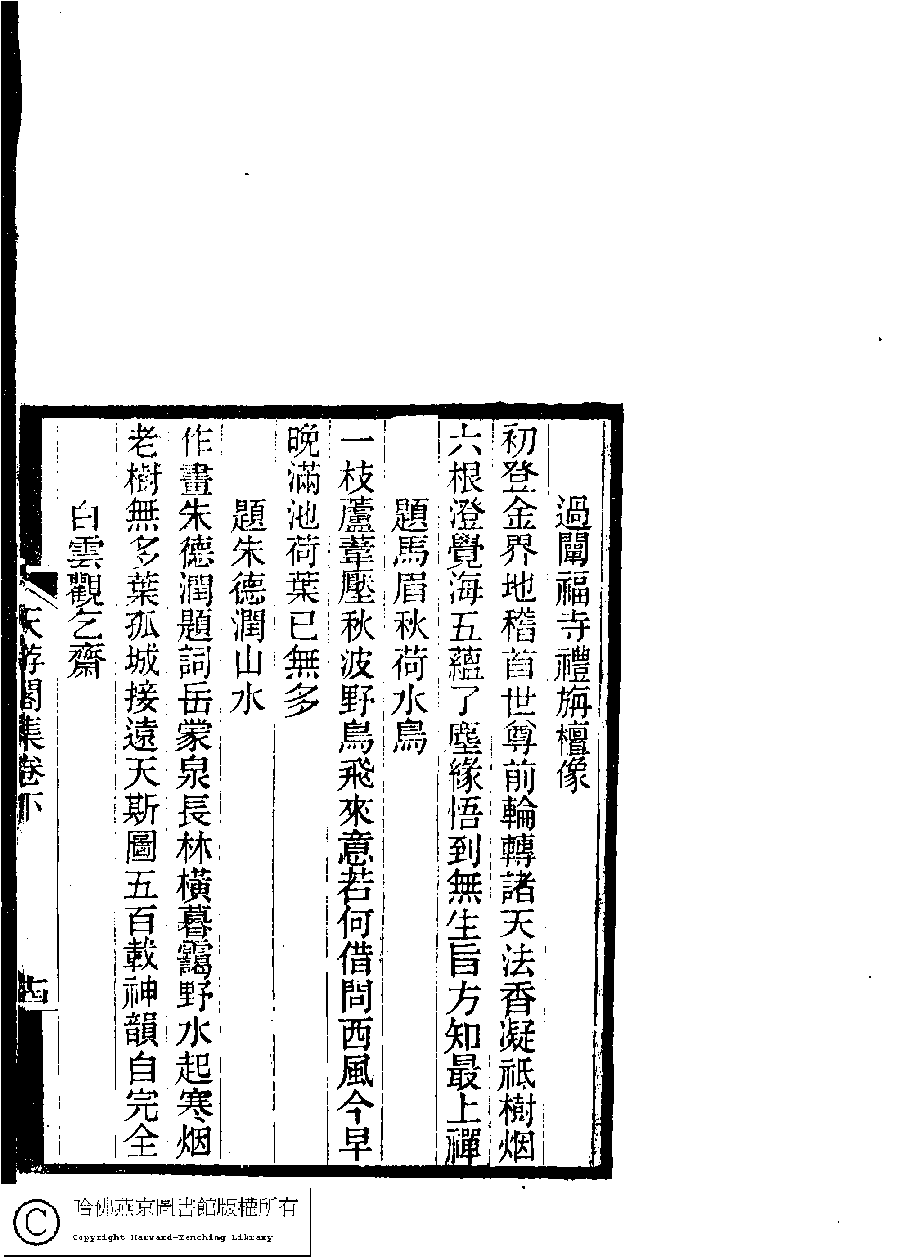 過闡福寺禮旃檀像
初登金界地稽首世尊前輪轉諸天法香凝祇樹烟
六根澄覺海五蘊了塵緣悟到無生旨方知最上禪
題馬眉秋荷水鳥
一枝蘆葦壓秋波野鳥飛來意若何借問西風今早
晚滿池荷葉已無多
題朱德潤山水
作畫朱德潤題詞岳蒙泉長林橫暮靄野水起寒烟
老樹無多葉孤城接遠天斯圖五百載神韻自完全
白雲觀乞齋
天游閣集卷下
十四
哈佛燕京圖書館版權所有
Copyright Harvard-Yenching Library